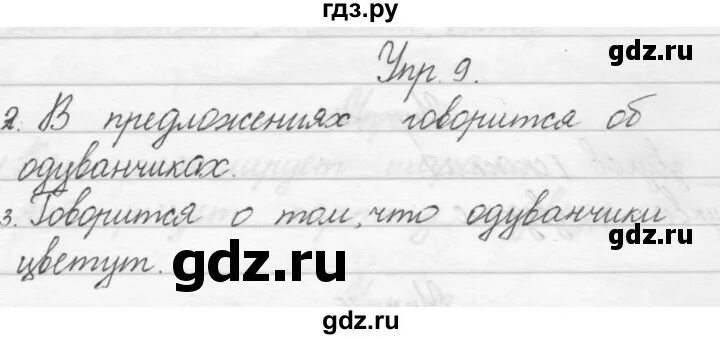 гдз.ру
gdz.ru
Упр. 9.
2. В предложениях говорится об
одуванчиках.
3. Говорится о том, что одуванчики
gdz.ru
цветут.
gdz.ru
gdz.ru